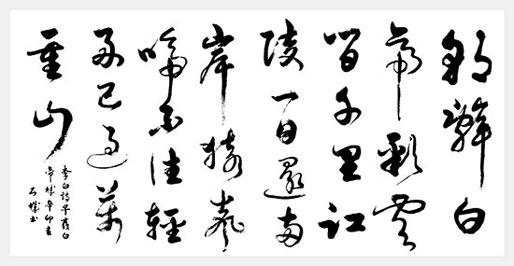 朝辭白
帝彩雲
間千里江
陵一日還兩
岸猿聲
啼不住輕
舟已過萬
重山
李白詩早發白
帝城辛卯
書